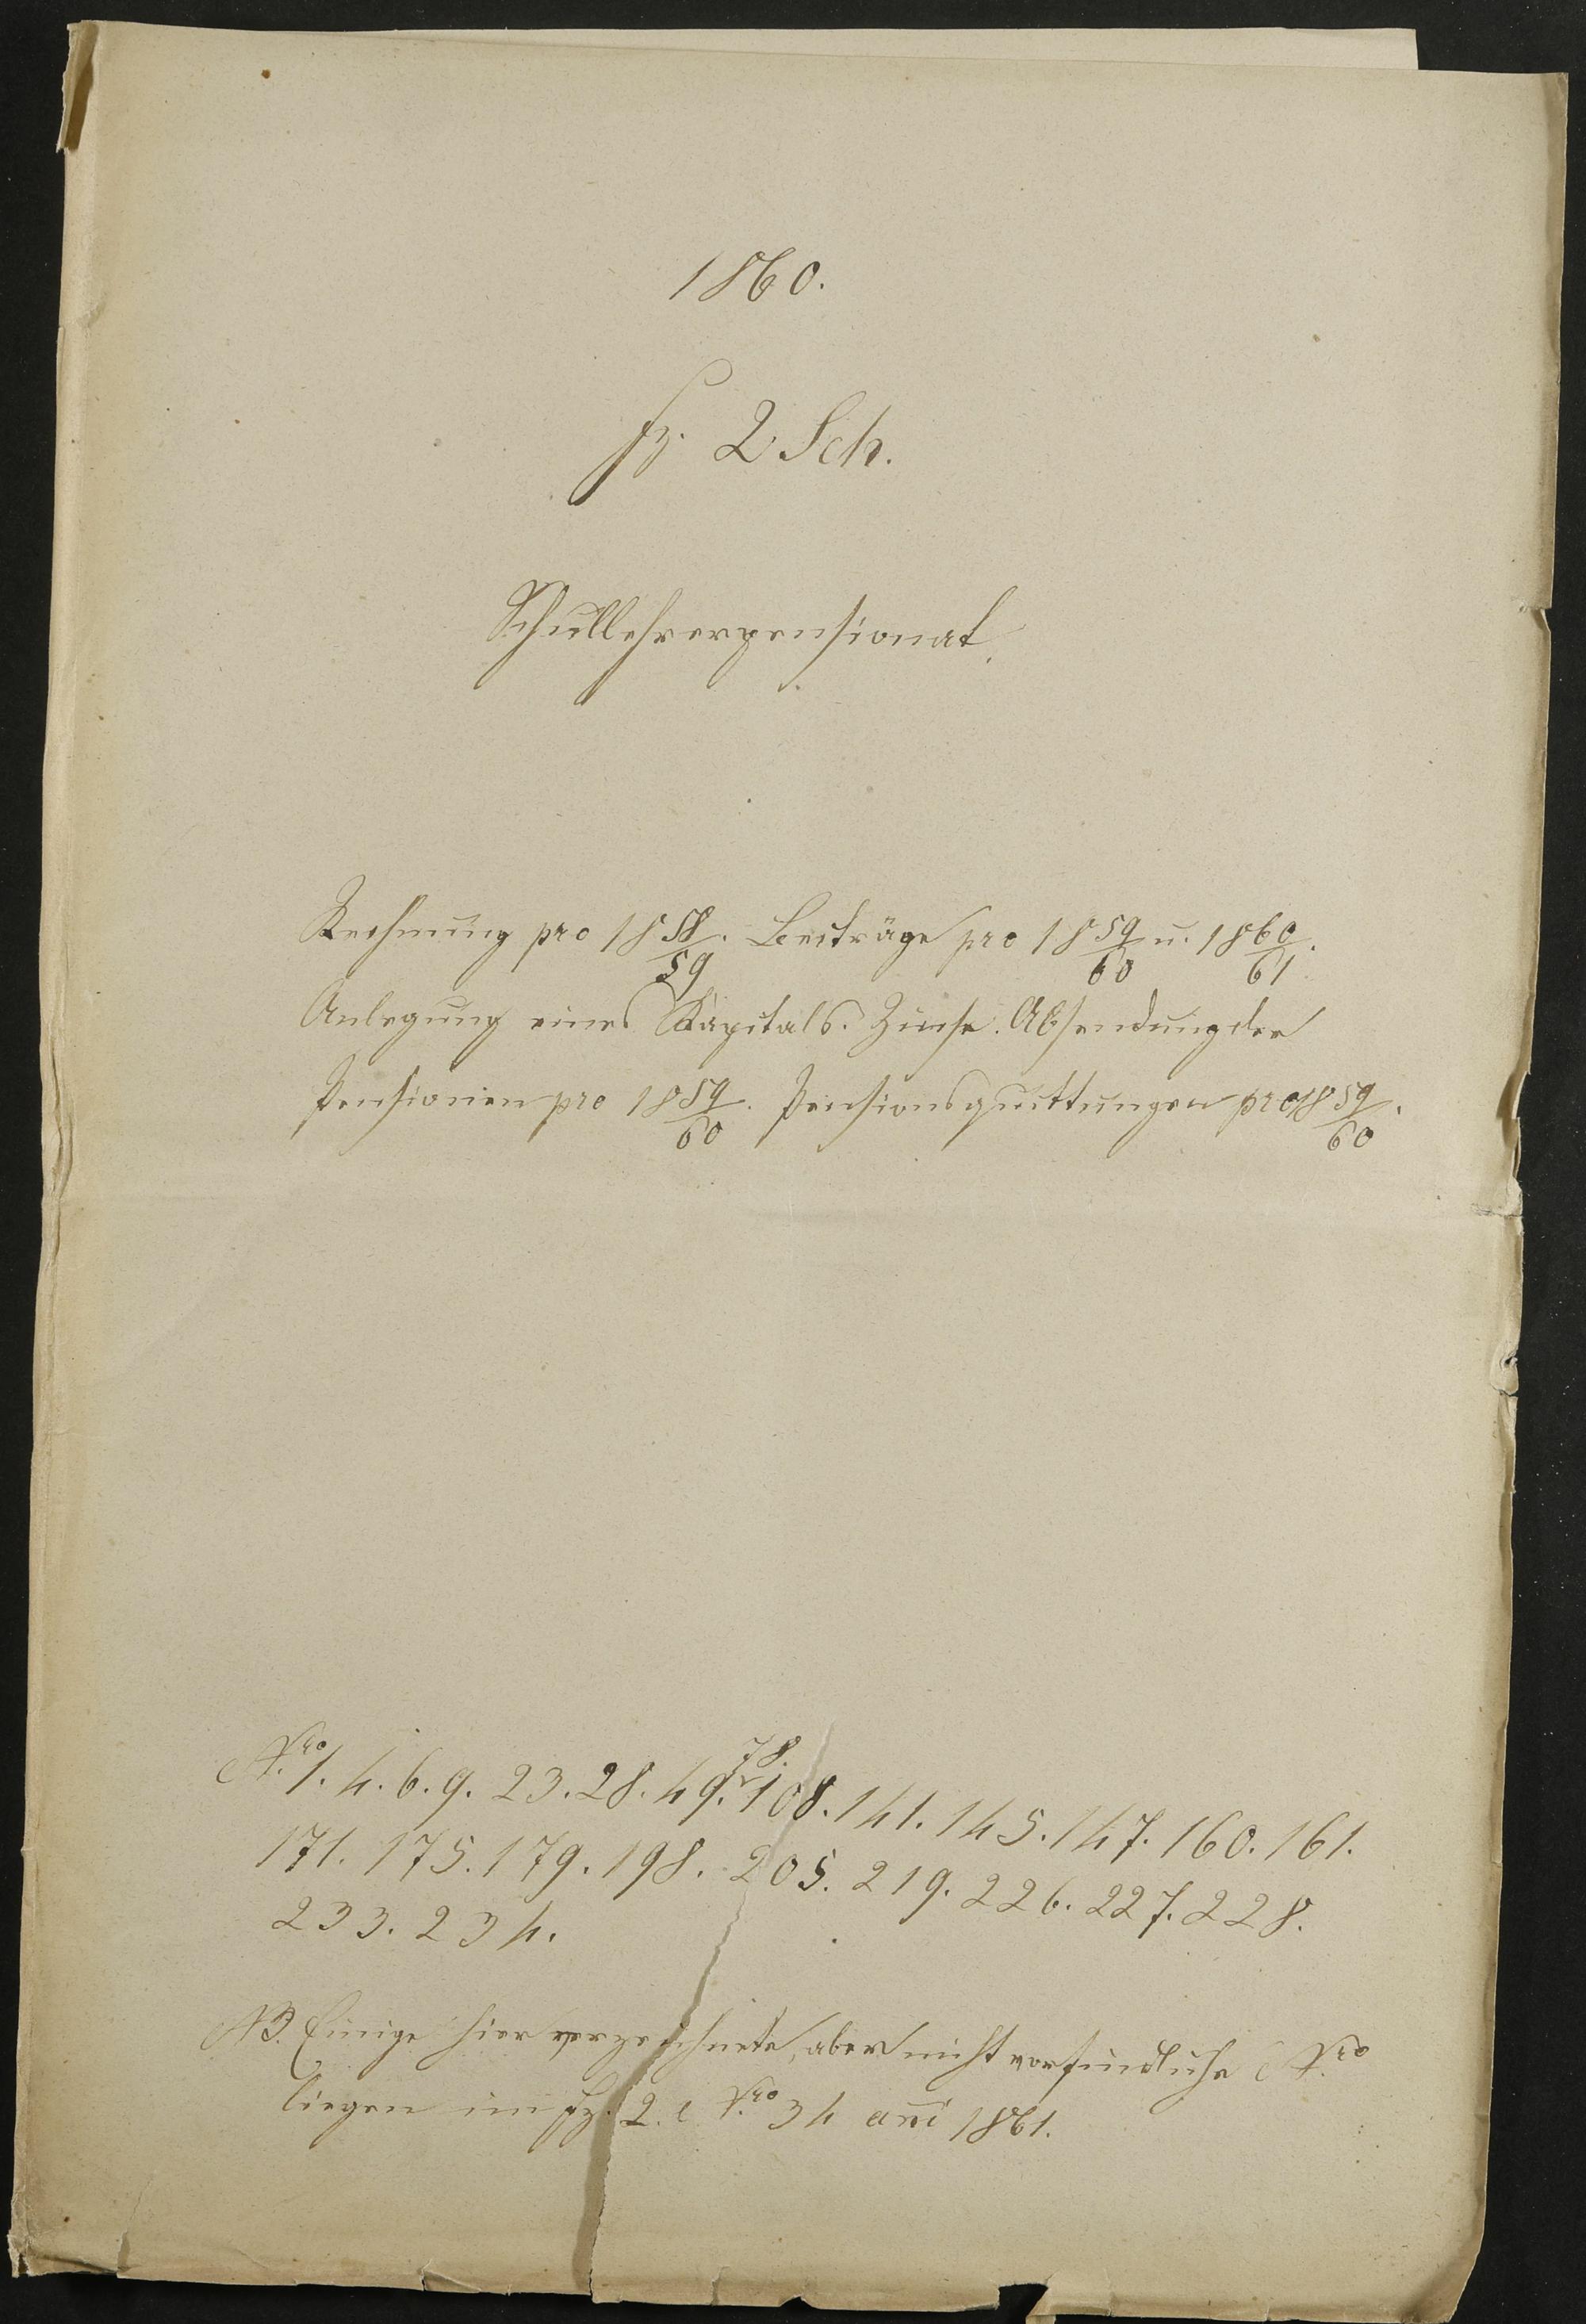 1860.
fz. 2 Sch.
Schullehrerpensionat.
Rechnung pro 1858/59. Beiträge pro 1859/60 u. 1860/61.
Anlegung eines Kapitals. Zinse. Absendung der
Pensionen pro 1859/60. Pensionsquittungen pro 1859/60.
Nro. 1. 4. 6. 9. 23. 28. 49. 78. 108. 141. 145. 147. 160. 161.
171. 175. 179. 198. 205. 219. 226. 227. 228.
233. 234.
NB. Einige hier verzeichnete, aber nicht vorfindliche Nro.
liegen im fz. 2. e Nro. 34 ani 1861.